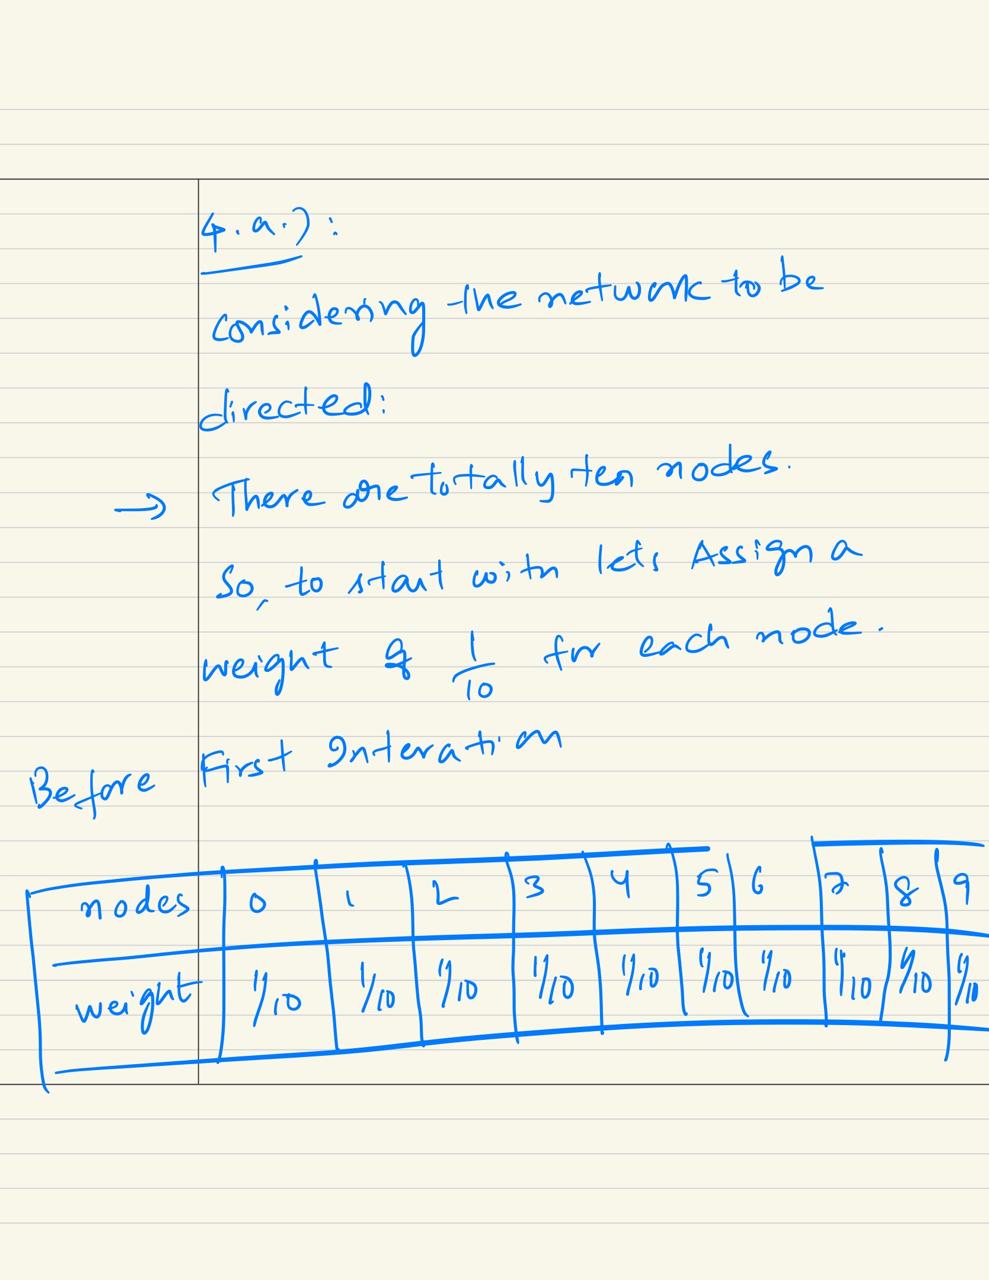 4.a.):
Considering the network to be
directed:
→ There are totally ten nodes.
So, to start with lets Assign a
weight of 1/10 for each node.
Before First Interation
nodes 0 1 2 3 4 5 6 7 8 9
weight 1/10 1/10 1/10 1/10 1/10 1/10 1/10 1/10 1/10 1/10